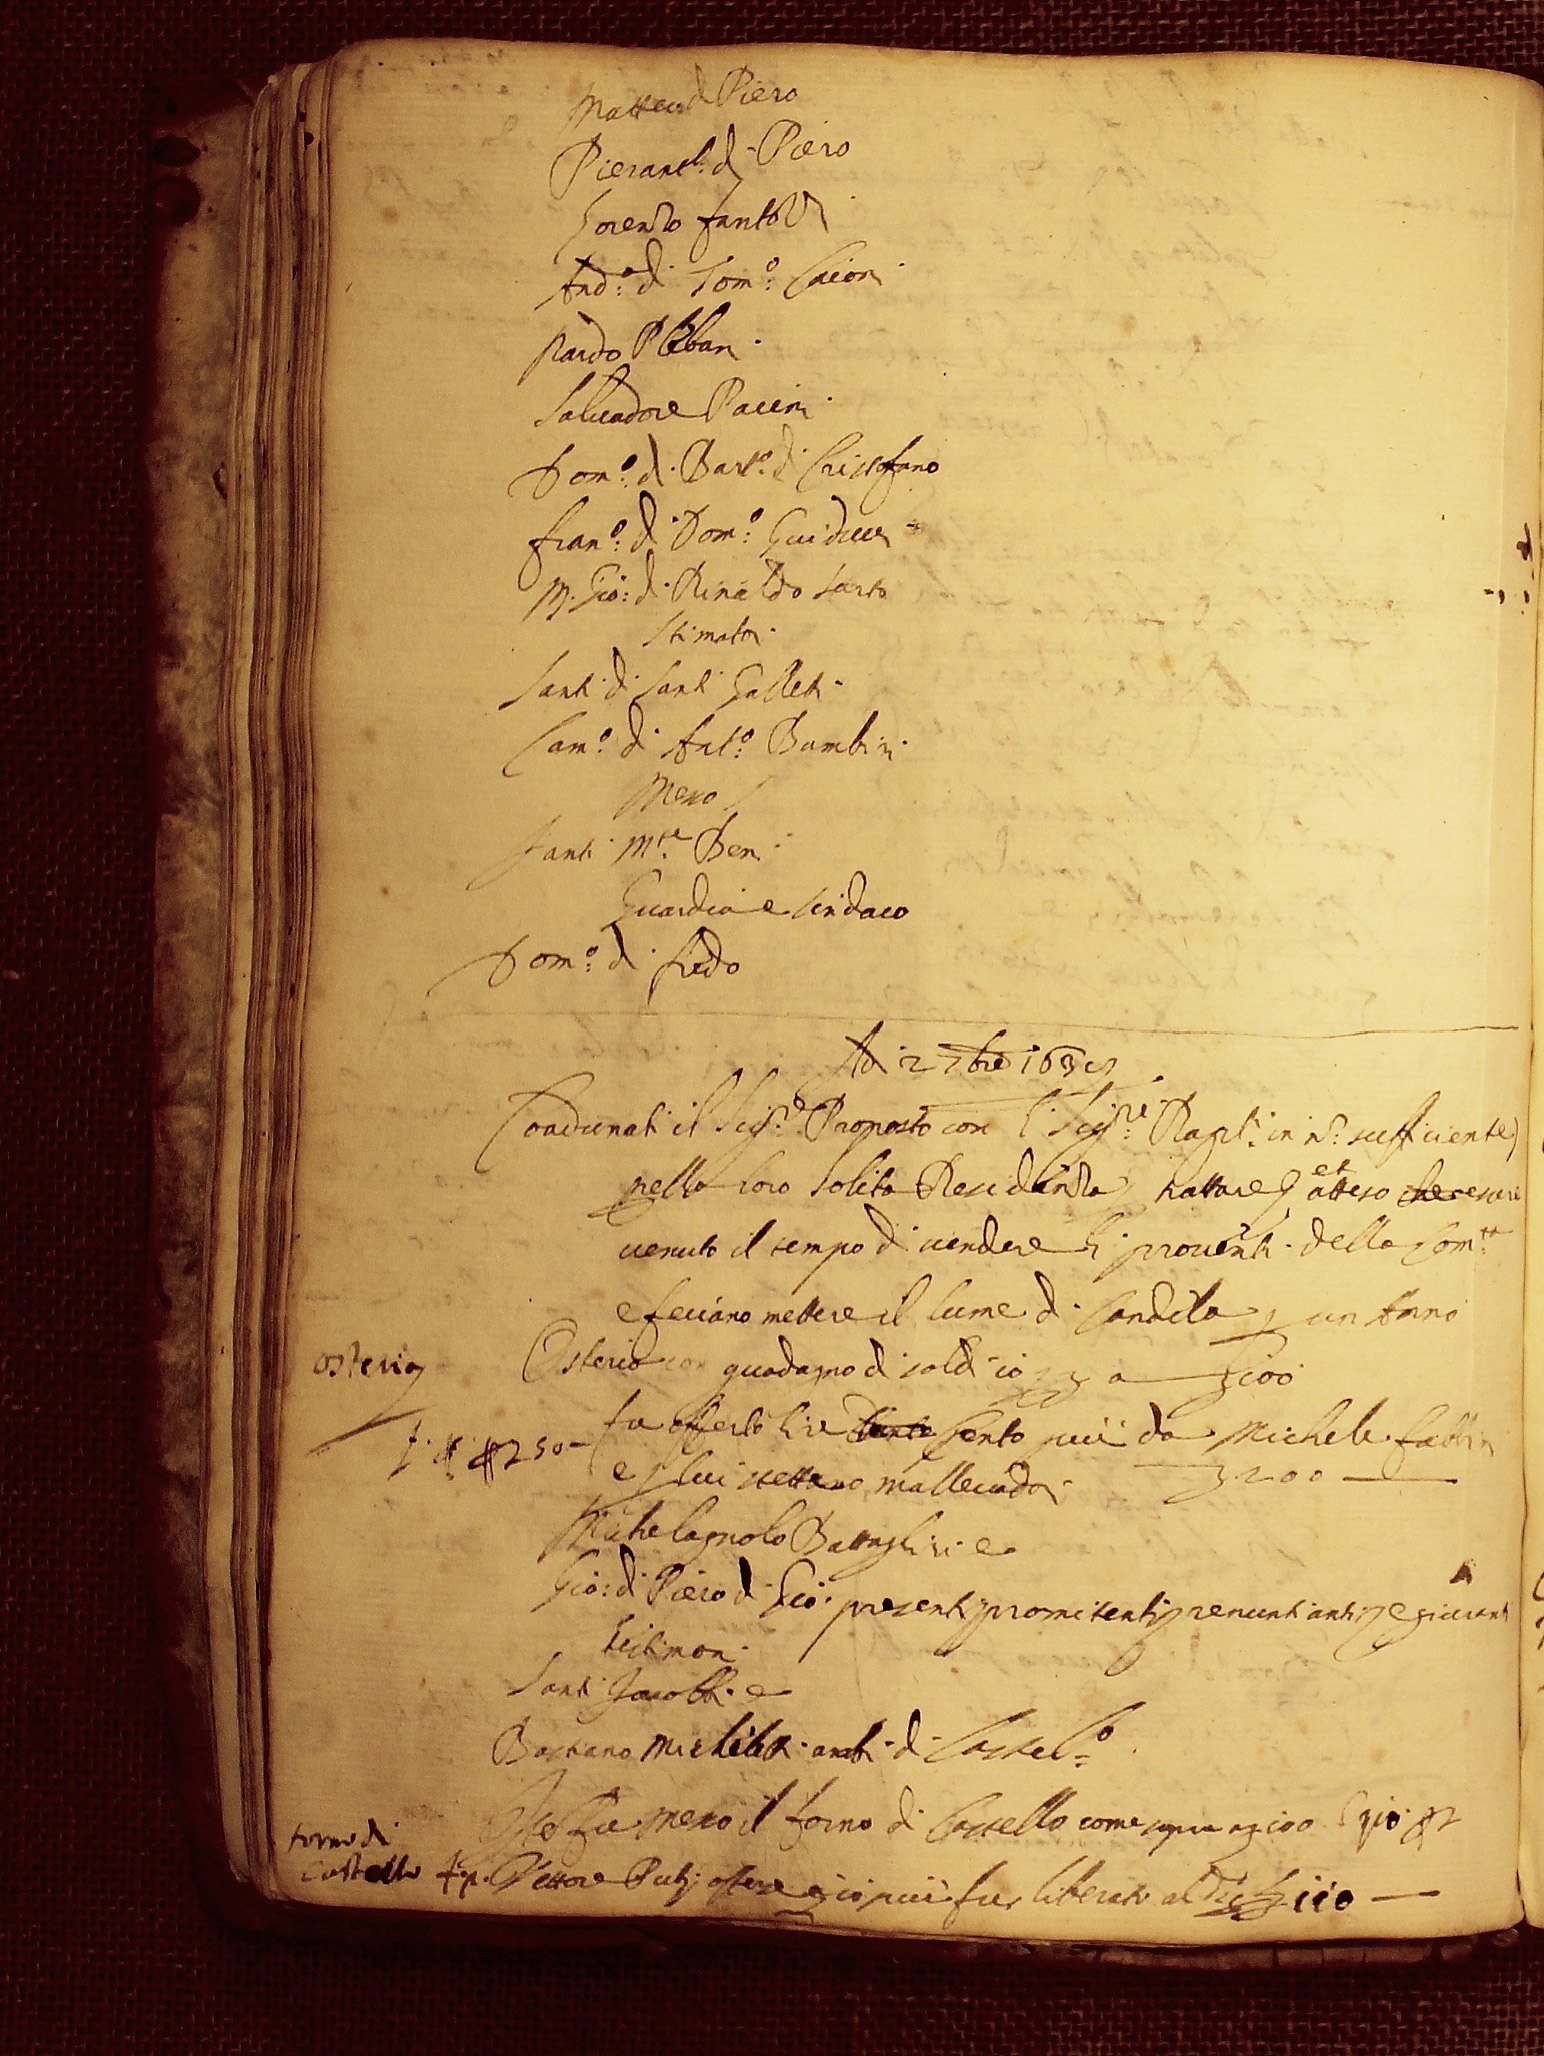 Matteo di Piero
Pierant.º di Piero
Lorenzo fantoni
And.º di Tom.º Cacioni
Nardo Plebani
Salvadore Pacini
Dom.º di Bart.º di Cristofano
fran.º di Dom.º Guiducci
M. Gio: di Rinaldo sarto
Stimatori
Santi di Santi Galleti
Cam.º di Ant.º Bambini
Messo
Santi M.ª Beni
Guardia e sindaco
Dom.º di
Adi 2 7bre 163
Coadunati il Sig.re Proposto con li Sig.ri Rapti. in n.º sufficiente
nella loro solita Residenza trattare et atteso essere
venuto il tempo di vendere li proventi della Com.tà
e feciano mettere il lume di Candela p un Anno
osteria
Osteria con guadagno di soldi 10 a 100
250
fu offerto lire Cento più da Michele fabbrini
e p lui stettano mallevadori 200
Michelagnolo Battaglini e
Gio: di Piero di Gio. presenti promitenti renuntianti e giuranti
testimoni
Santi Jacobbi e
Bastiano Micheletti ambi di Castel.º
forno di
Castello
fu messo il forno di Castello come sopra
Vettore più fu liberato al 110